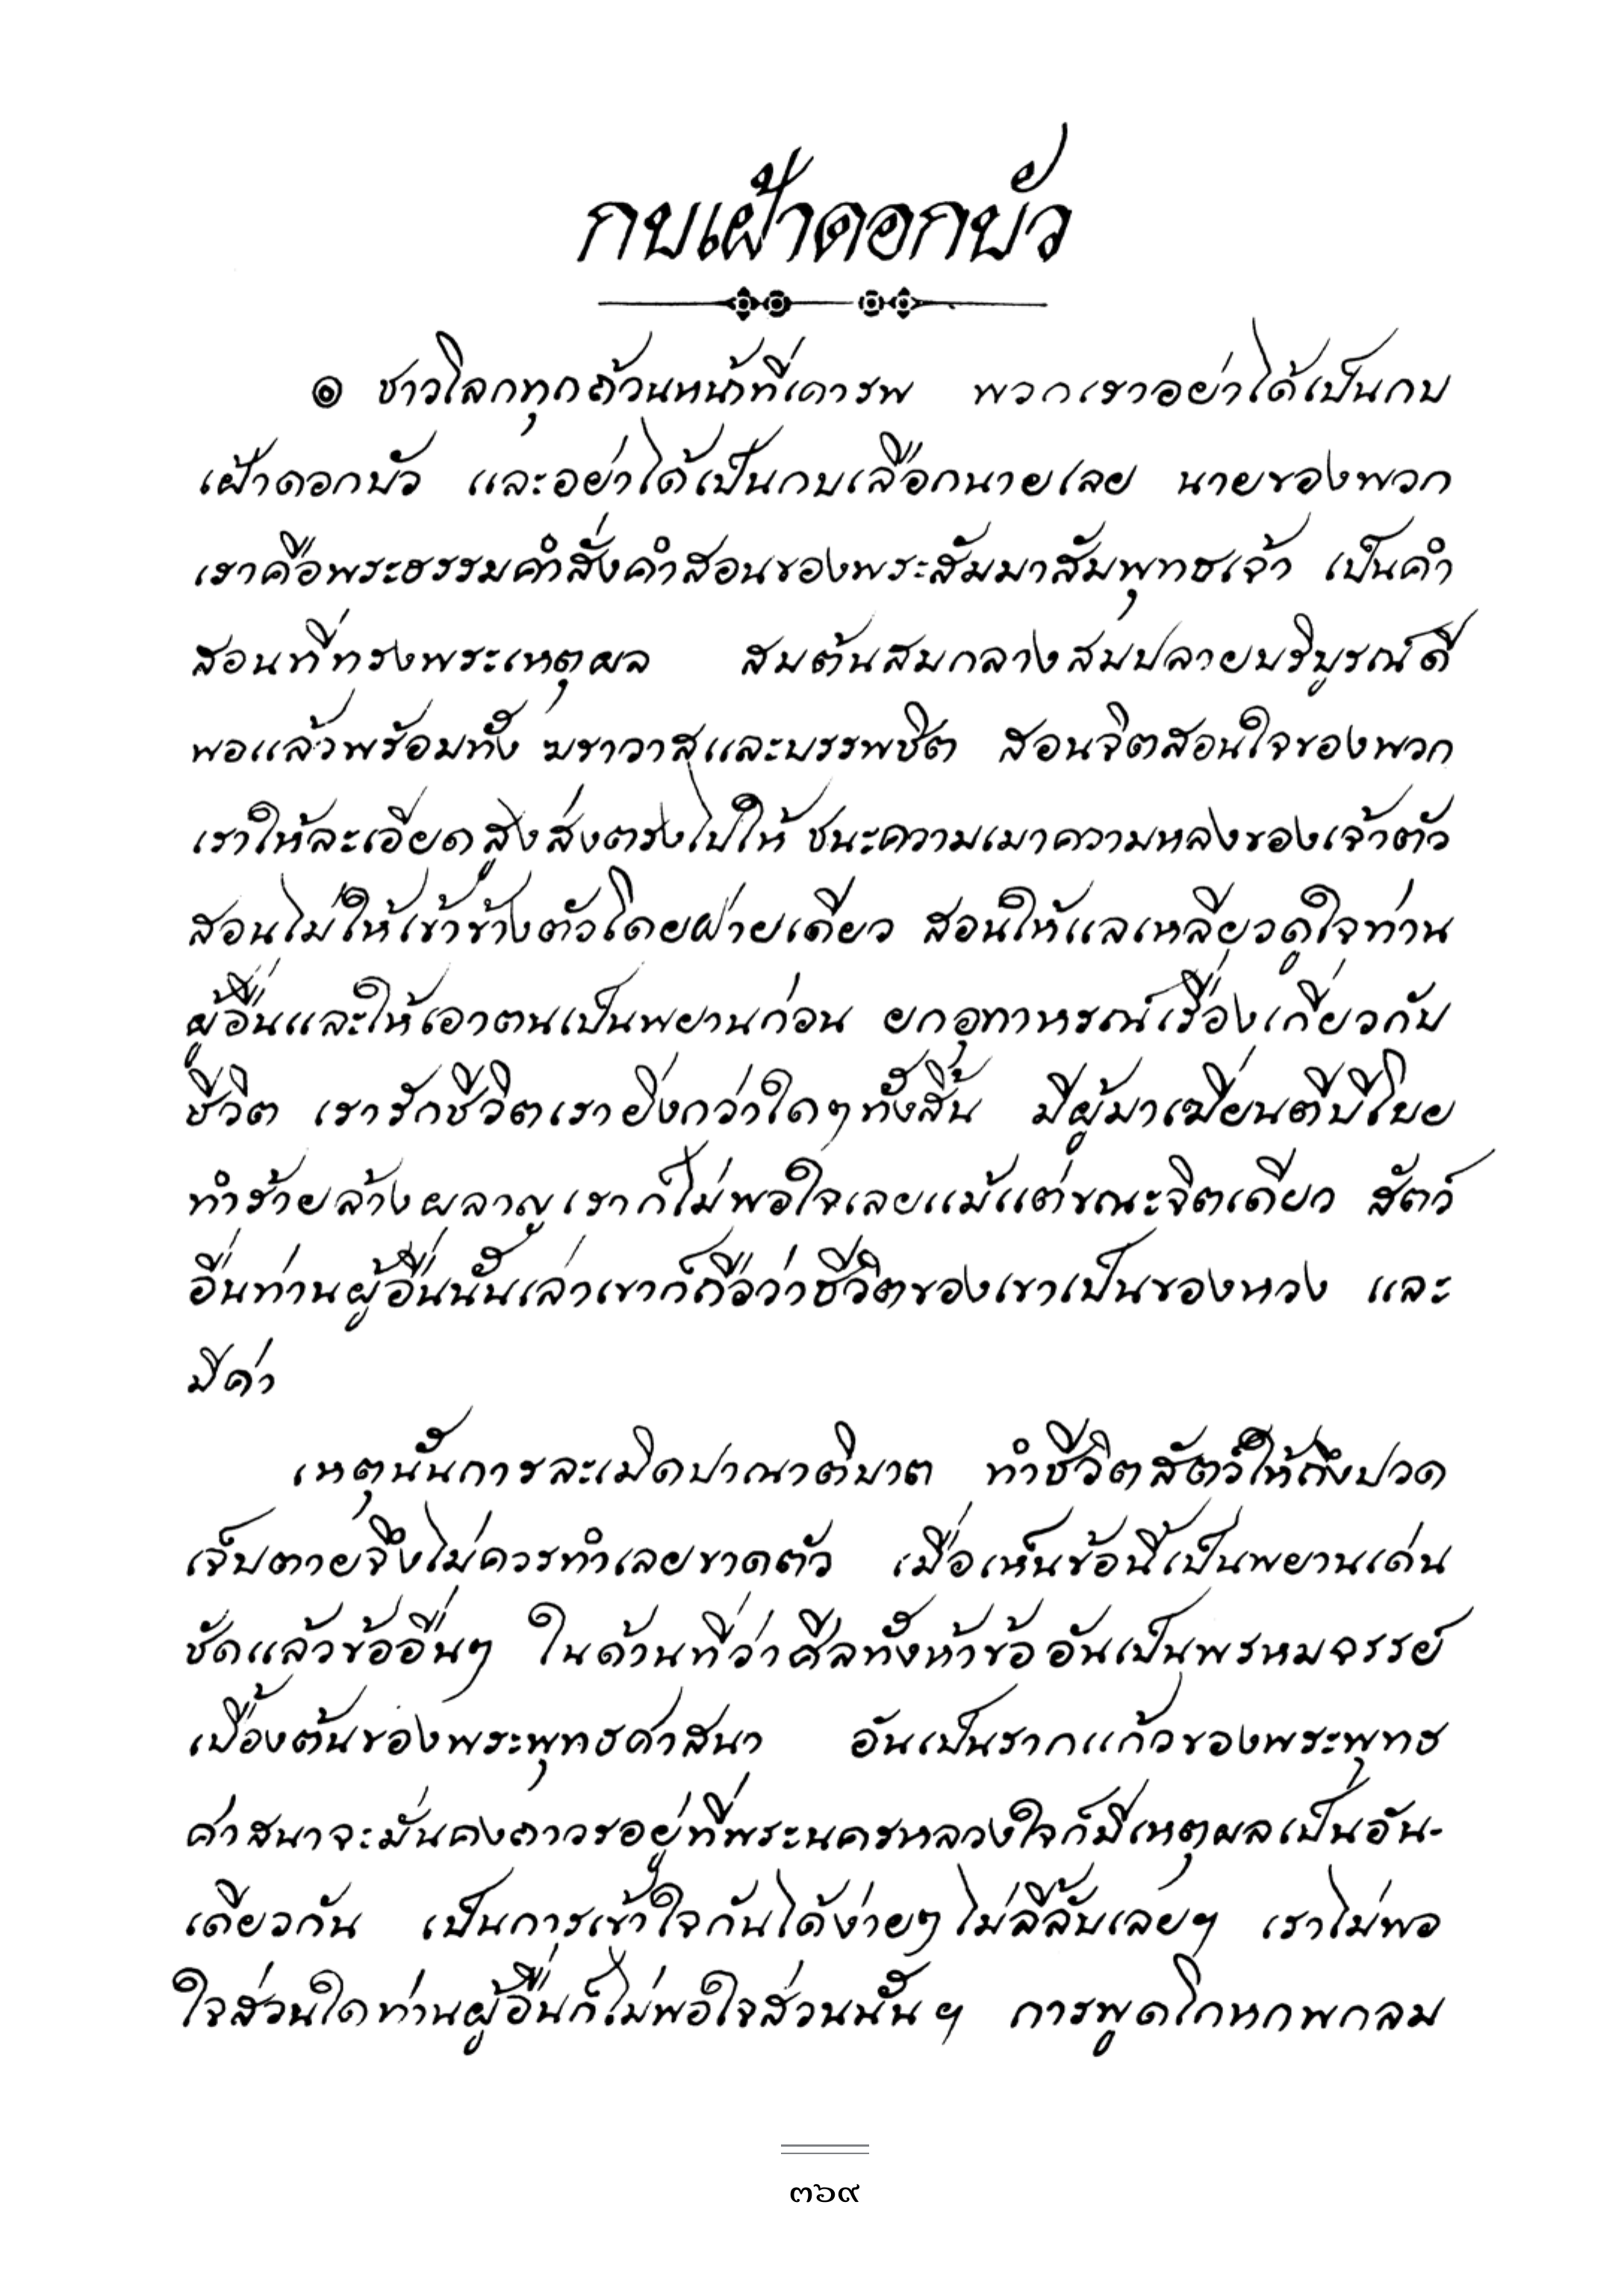 กบเฝ้าดอกบัว
๏ ชาวโลกทุกถ้วนหน้าที่เคารพ พวกเราอย่าได้เป็นกบ
เฝ้าดอกบัว และอย่าได้เป็นกบเลือกนายเลย นายของพวก
เราคือพระธรรมคำสั่งคำสอนของพระสัมมาสัมพุทธเจ้า เป็นคำ
สอนที่ทรงพระเหตุผล สมต้นสมกลางสมปลายบริบูรณ์ดี
พอแล้วพร้อมทั้ง ฆราวาสและบรรพชิต สอนจิตสอนใจของพวก
เราให้ละเอียดสูงส่งตรงไปให้ ชนะความเมาความหลงของเจ้าตัว
สอนไม่ให้เข้าข้างตัวโดยฝ่ายเดียว สอนให้แลเหลียวดูใจท่าน
ผู้อื่นและให้เอาตนเป็นพยานก่อน ยกอุทาหรณ์เรื่องเกี่ยวกับ
ชีวิต เรารักชีวิตเรายิ่งกว่าใดๆทั้งสิ้น มีผู้มาเฆี่ยนตีบีโบย
ทำร้ายล้างผลาญเราก็ไม่พอใจเลยแม้แต่ขณะจิตเดียว สัตว์
อื่นท่านผู้อื่นนั้นเล่าเขาก็ถือว่าชีวิตของเขาเป็นของหวง และ
มีค่า
เหตุนั้นการละเมิดปาณาติบาต ทำชีวิตสัตว์ให้ถึงปวด
เจ็บตายจึงไม่ควรทำเลยขาดตัว เมื่อเห็นข้อนี้เป็นพยานเด่น
ชัดแล้วข้ออื่นๆ ในด้านที่ว่าศีลทั้งห้าข้อ อันเป็นพรหมจรรย์
เบื้องต้นของพระพุทธศาสนา อันเป็นรากแก้วของพระพุทธ
ศาสนาจะมั่นคงถาวรอยู่ที่พระนครหลวงใจก็มีเหตุผลเป็นอัน-
เดียวกัน เป็นการเข้าใจกันได้ง่ายๆ ไม่ลี้ลับเลยฯ เราไม่พอ
ใจส่วนใดท่านผู้อื่นก็ไม่พอใจส่วนนั้น ฯ การพูดโกหกพกลม
๓๖๙